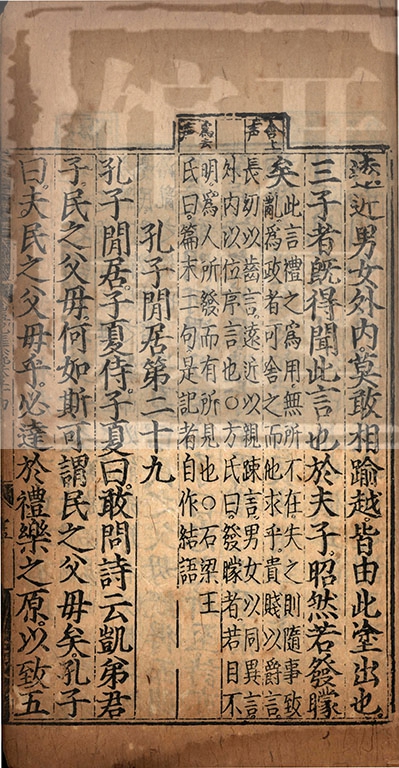 遠近男女外內莫敢相踰越皆由此塗出也
三子者旣得聞此言也於夫子昭然若發矇
矣
此言禮之爲用無所不在失之則隨事致
亂爲政者可舍之而他求乎貴賤以爵言
長幼以齒言遠近以親踈言男女以同異言
外內以位序言也○方氏曰發矇者若目不
明爲人所發而有所見也○石梁王
氏曰篇末二句是記者自作結語
孔子閒居第二十九
孔子閒居子夏侍子夏曰敢問詩云凱弟君
子民之父母何如斯可謂民之父母矣孔子
曰夫民之父母乎必達於禮樂之原以致五